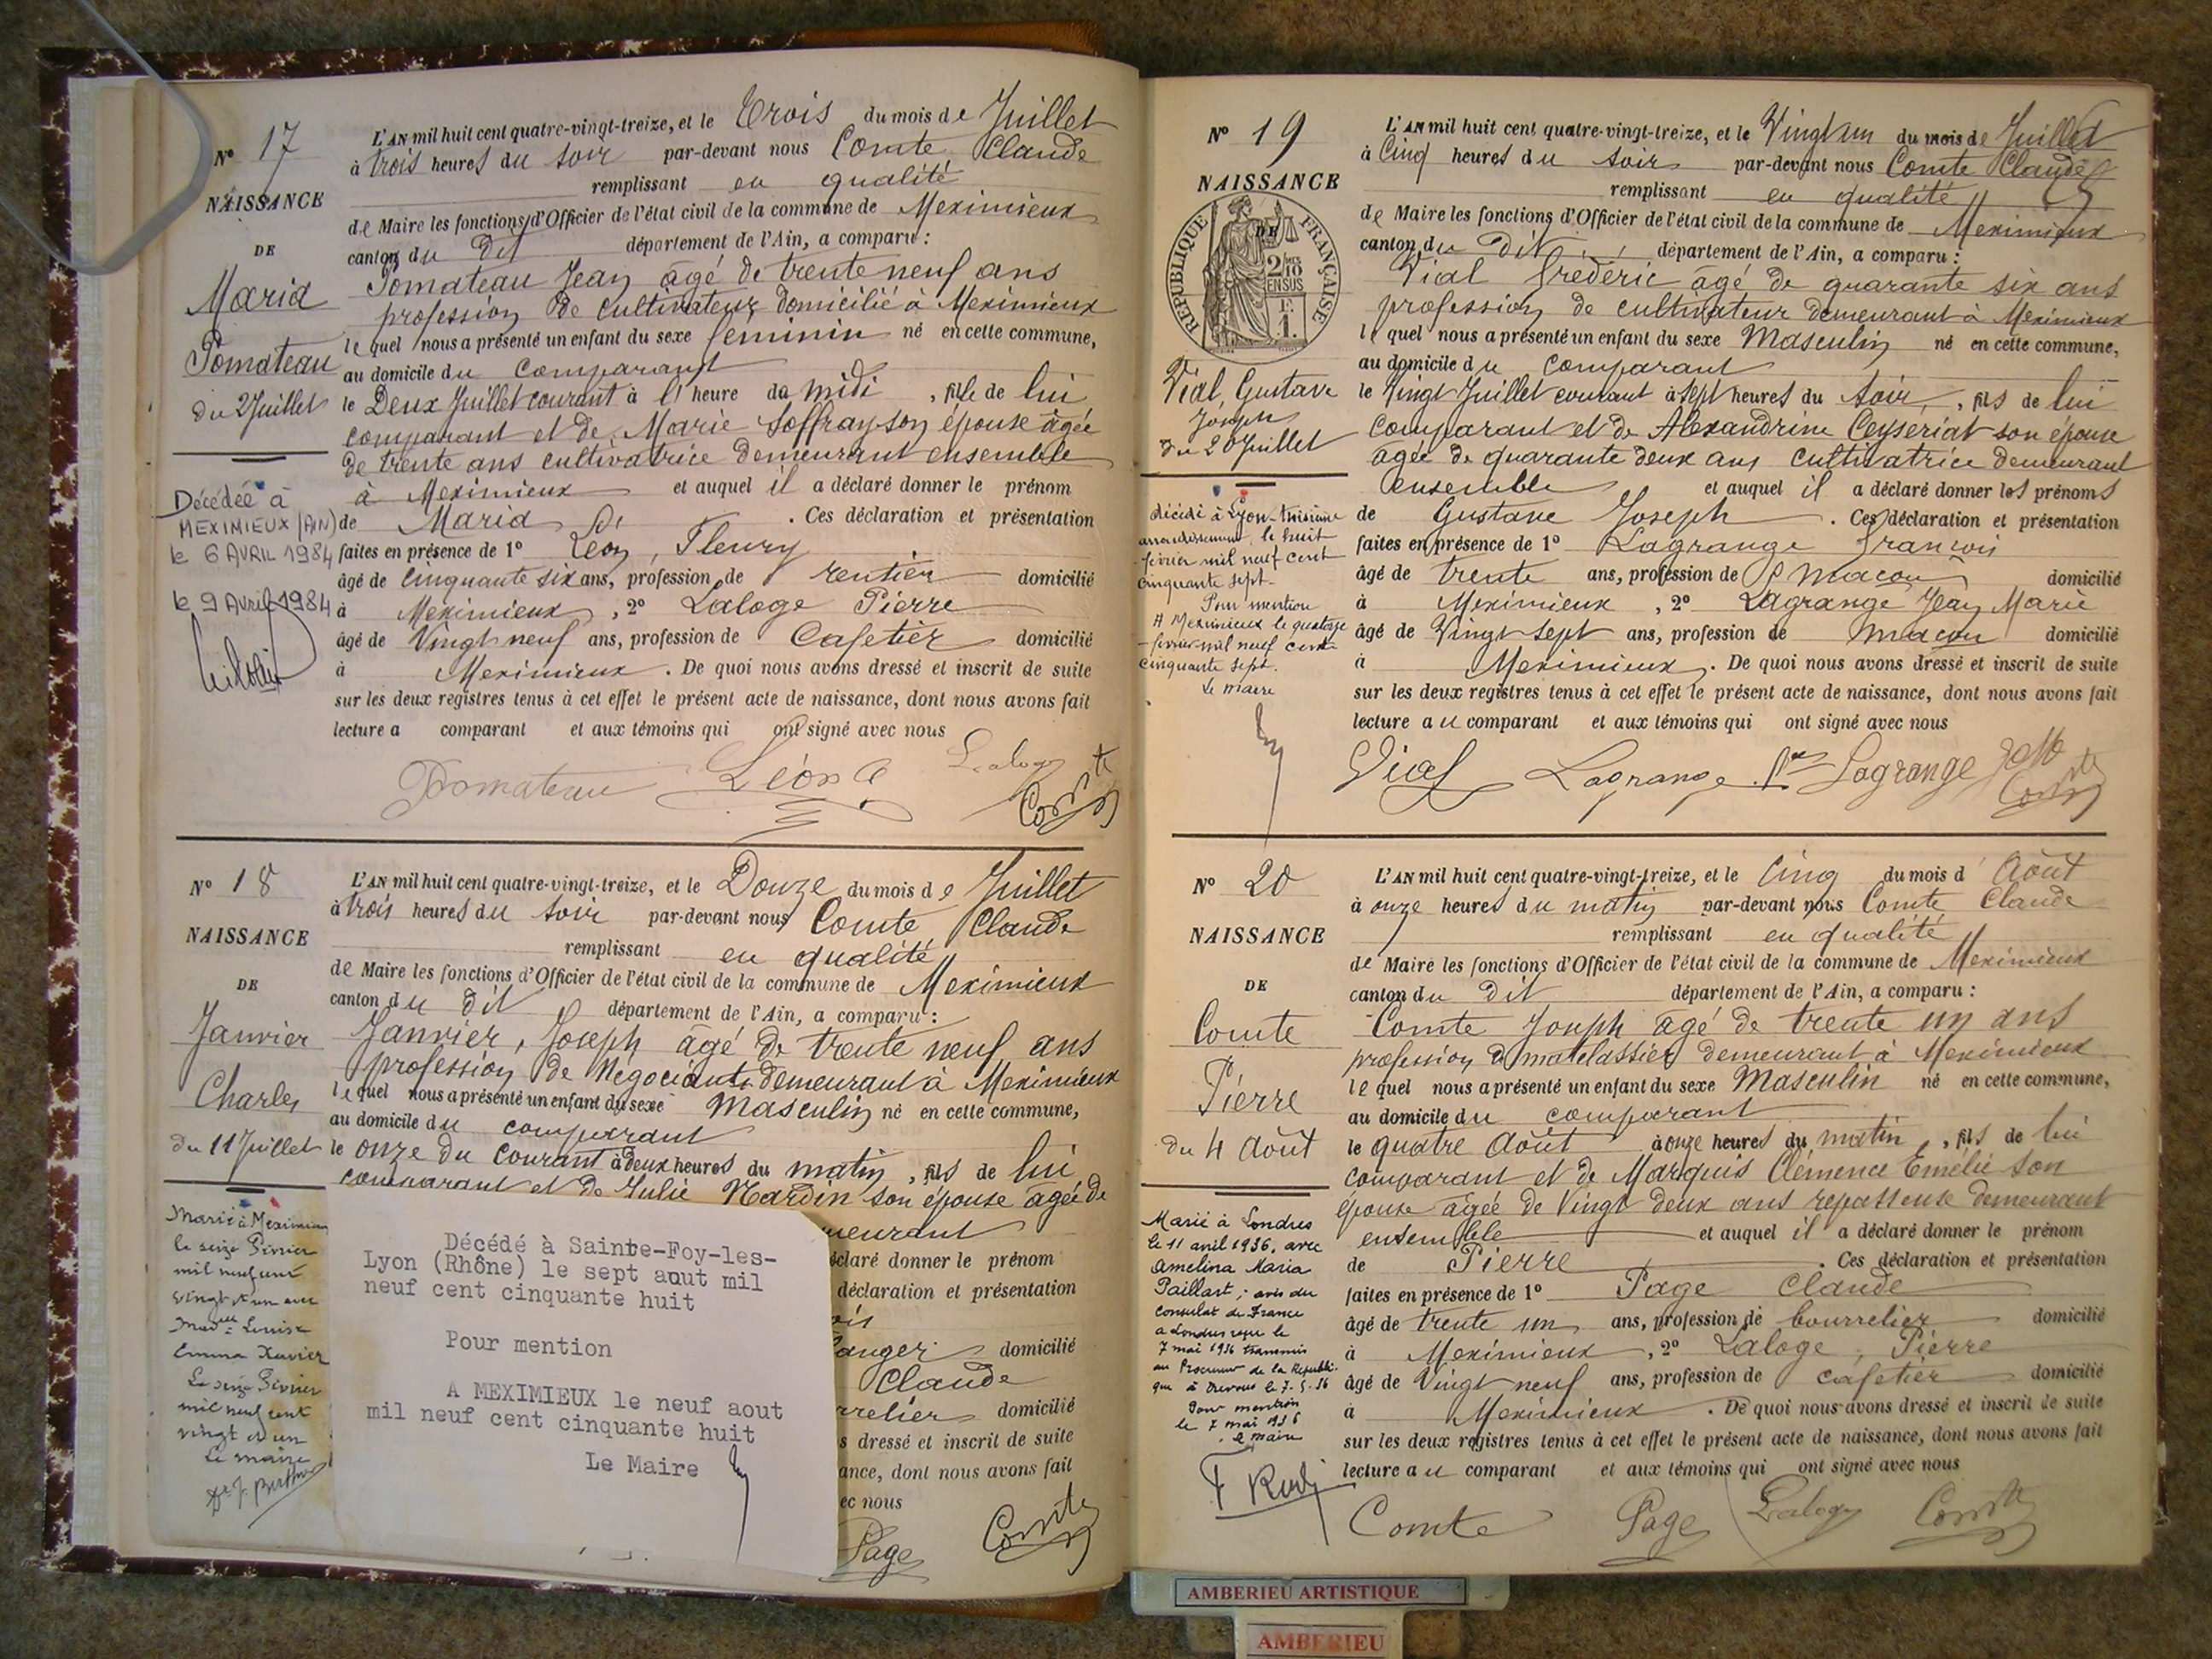 N° 17
NAISSANCE
DE
Maria
Pomateau
du 2 Juillet
Décédée à
MEXIMIEUX (AIN)
le 6 AVRIL 1984
le 9 Avril 1984
L'AN mil huit cent quatre-vingt-treize, et le Trois du mois de Juillet
à trois heures du soir par-devant nous Comte Claude
remplissant en qualité
de Maire les fonctions d'Officier de l'état civil de la commune de Meximieux
canton du dit département de l'Ain, a comparu :
Pomateau Jean âgé de trente neuf ans
profession de cultivateur domicilié à Meximieux
lequel nous a présenté un enfant du sexe feminin né en cette commune,
au domicile du comparant
le Deux Juillet courant à l' heure da midi , fille de lui
comparant et de Marie Soffray son épouse âgée
de trente ans cultivatrice demeurant ensemble
à Meximieux et auquel il a déclaré donner le prénom
de Maria . Ces déclaration et présentation
faites en présence de 1° Léon, Fleury
âgé de cinquante six ans, profession de rentier domicilié
à Meximieux , 2° Laloge Pierre
âgé de Vingt neuf ans, profession de Cafetier domicilié
à Meximieux . De quoi nous avons dressé et inscrit de suite
sur les deux registres tenus à cet effet le présent acte de naissance, dont nous avons fait
lecture a comparant et aux témoins qui ont signé avec nous
Pomateau Léon Laloge Comte
N° 18
NAISSANCE
DE
Janvier
Charles
du 11 Juillet
Marié à Meximieux
le seize Février
mil neuf cent
vingt et un avec
Louise
Emma Xavier
Le seize Février
mil neuf cent
vingt et un
Le maire
L'AN mil huit cent quatre-vingt-treize, et le Douze du mois de Juillet
à trois heures du soir par-devant nous Comte Claude
remplissant en qualité
de Maire les fonctions d'Officier de l'état civil de la commune de Meximieux
canton du dit département de l'Ain, a comparu :
Janvier, Joseph âgé de trente neuf ans
profession de Négociant demeurant à Meximieux
lequel nous a présenté un enfant du sexe Masculin né en cette commune,
au domicile du comparant
le onze du courant à deux heures du matin , fils de lui
comparant et de Julie Nardin son épouse agée de
meurant
déclaré donner le prénom
déclaration et présentation
domicilié
Claude
rrelier domicilié
s dressé et inscrit de suite
ance, dont nous avons fait
ec nous
Page Comte
Décédé à Sainte-Foy-les-
Lyon (Rhône) le sept aout mil
neuf cent cinquante huit
Pour mention
A MEXIMIEUX le neuf aout
mil neuf cent cinquante huit
Le Maire
N° 19
NAISSANCE
DE
RÉPUBLIQUE FRANÇAISE
2/10 EN SUS
Vial, Gustave
Joseph
du 20 Juillet
décédé à Lyon-troisième
arrondissement, le huit
février mil neuf cent
cinquante sept.
Pour mention
A Meximieux le quatorze
février mil neuf cent
cinquante sept.
Le maire
L'AN mil huit cent quatre-vingt-treize, et le Vingt un du mois de Juillet
à Cinq heures du soir par-devant nous Comte Claude
remplissant en qualité
de Maire les fonctions d'Officier de l'état civil de la commune de Meximieux
canton du Dit département de l'Ain, a comparu :
Vial Frédéric âgé de quarante six ans
profession de cultivateur demeurant à Meximieux
lequel nous a présenté un enfant du sexe Masculin né en cette commune,
au domicile du comparant
le Vingt Juillet courant à sept heures du soir , fils de lui
comparant et de Alexandrine Ceyseriat son épouse
âgée de quarante deux ans cultivatrice demeurant
ensemble et auquel il a déclaré donner les prénoms
de Gustave Joseph . Ces déclaration et présentation
faites en présence de 1° Lagrange François
âgé de trente ans, profession de maçon domicilié
à Meximieux , 2° Lagrange Jean Marie
âgé de Vingt sept ans, profession de maçon domicilié
à Meximieux . De quoi nous avons dressé et inscrit de suite
sur les deux registres tenus à cet effet le présent acte de naissance, dont nous avons fait
lecture au comparant et aux témoins qui ont signé avec nous
Vial Lagrange Lagrange Comte
N° 20
NAISSANCE
DE
Comte
Pierre
du 4 Août
Marié à Londres
le 11 avril 1936, avec
Amelina Maria
Paillart ; avis du
consulat de France
à Londres reçu le
7 mai 1936 transmis
au Procureur de la Républi-
que à Trévoux le 7-5-36
Pour mention
le 7 mai 1936
Le maire
L'AN mil huit cent quatre-vingt-treize, et le Cinq du mois d'Août
à onze heures du matin par-devant nous Comte Claude
remplissant en qualité
de Maire les fonctions d'Officier de l'état civil de la commune de Meximieux
canton du Dit département de l'Ain, a comparu :
Comte Joseph âgé de trente un ans
profession de matelassier demeurant à Meximieux
lequel nous a présenté un enfant du sexe Masculin né en cette commune,
au domicile du comparant
le quatre Août à onze heures du matin , fils de lui
comparant et de Marquis Clémence Emélie son
épouse âgée de Vingt deux ans repasseuse demeurant
ensemble et auquel il a déclaré donner le prénom
de Pierre . Ces déclaration et présentation
faites en présence de 1° Page Claude
âgé de trente un ans, profession de bourrelier domicilié
à Meximieux , 2° Laloge, Pierre
âgé de Vingt neuf ans, profession de cafetier domicilié
à Meximieux . De quoi nous avons dressé et inscrit de suite
sur les deux registres tenus à cet effet le présent acte de naissance, dont nous avons fait
lecture au comparant et aux témoins qui ont signé avec nous
Comte Page Laloge Comte
AMBERIEU ARTISTIQUE
AMBERIEU